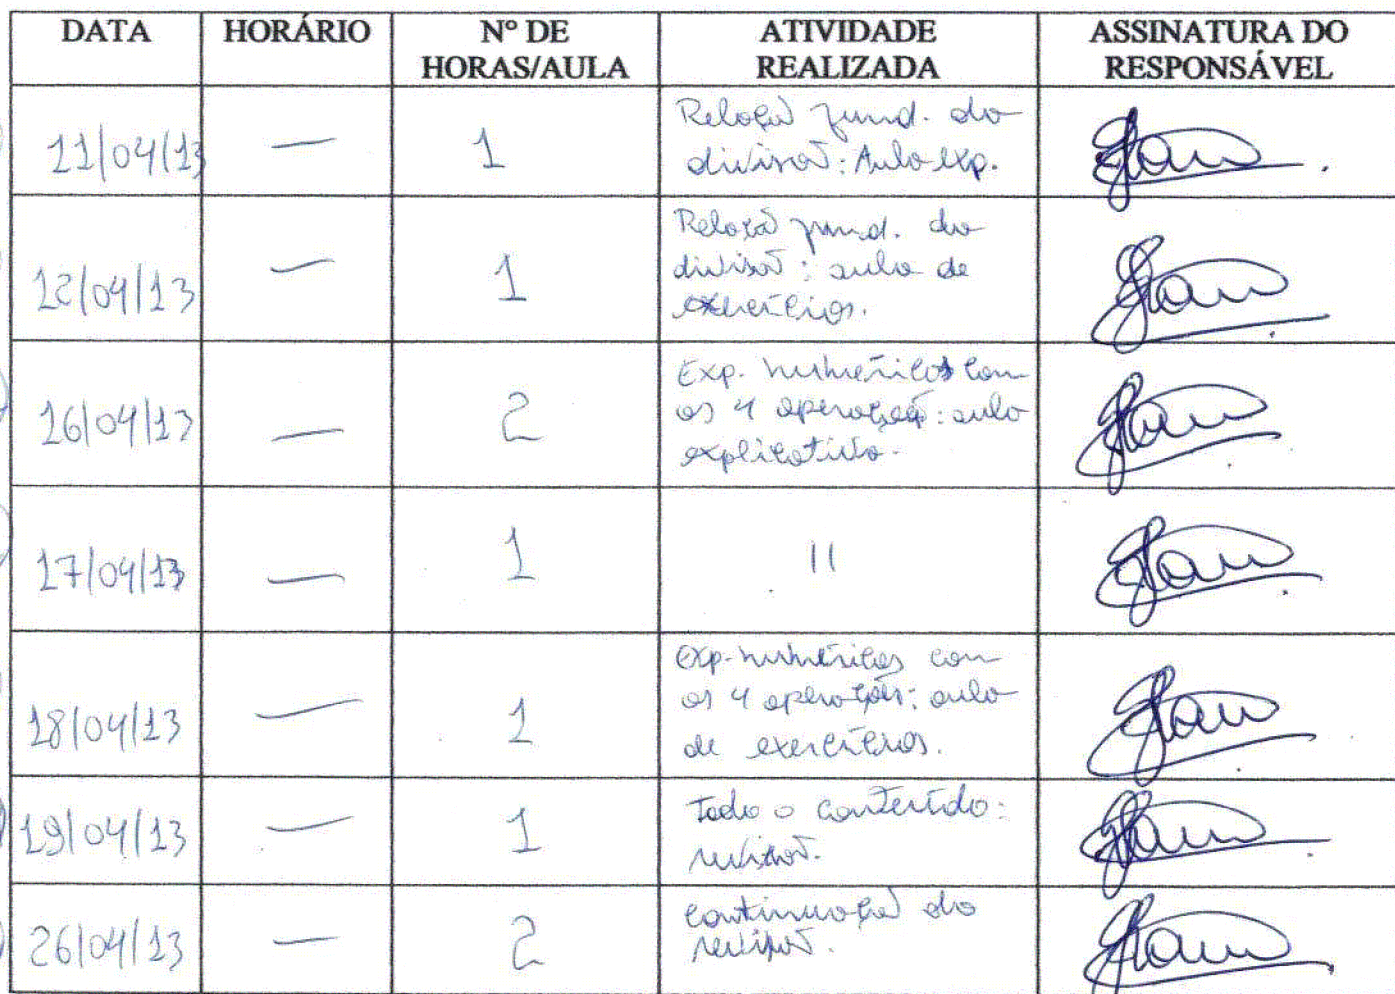 DATA HORÁRIO Nº DE HORAS/AULA ATIVIDADE REALIZADA ASSINATURA DO RESPONSÁVEL
11/04/13 — 1 Relação fund. da
divisão: Aula exp.
12/04/13 — 1 Relação fund. da
divisão: aula de
exercícios.
16/04/13 — 2 Exp. numéricas com
as 4 operações: aula
explicativa.
17/04/13 — 1 11
18/04/13 — 1 Exp. numéricas com
as 4 operações: aula
de exercícios.
19/04/13 — 1 Todo o conteúdo:
revisão.
26/04/13 — 2 Continuação da
revisão.